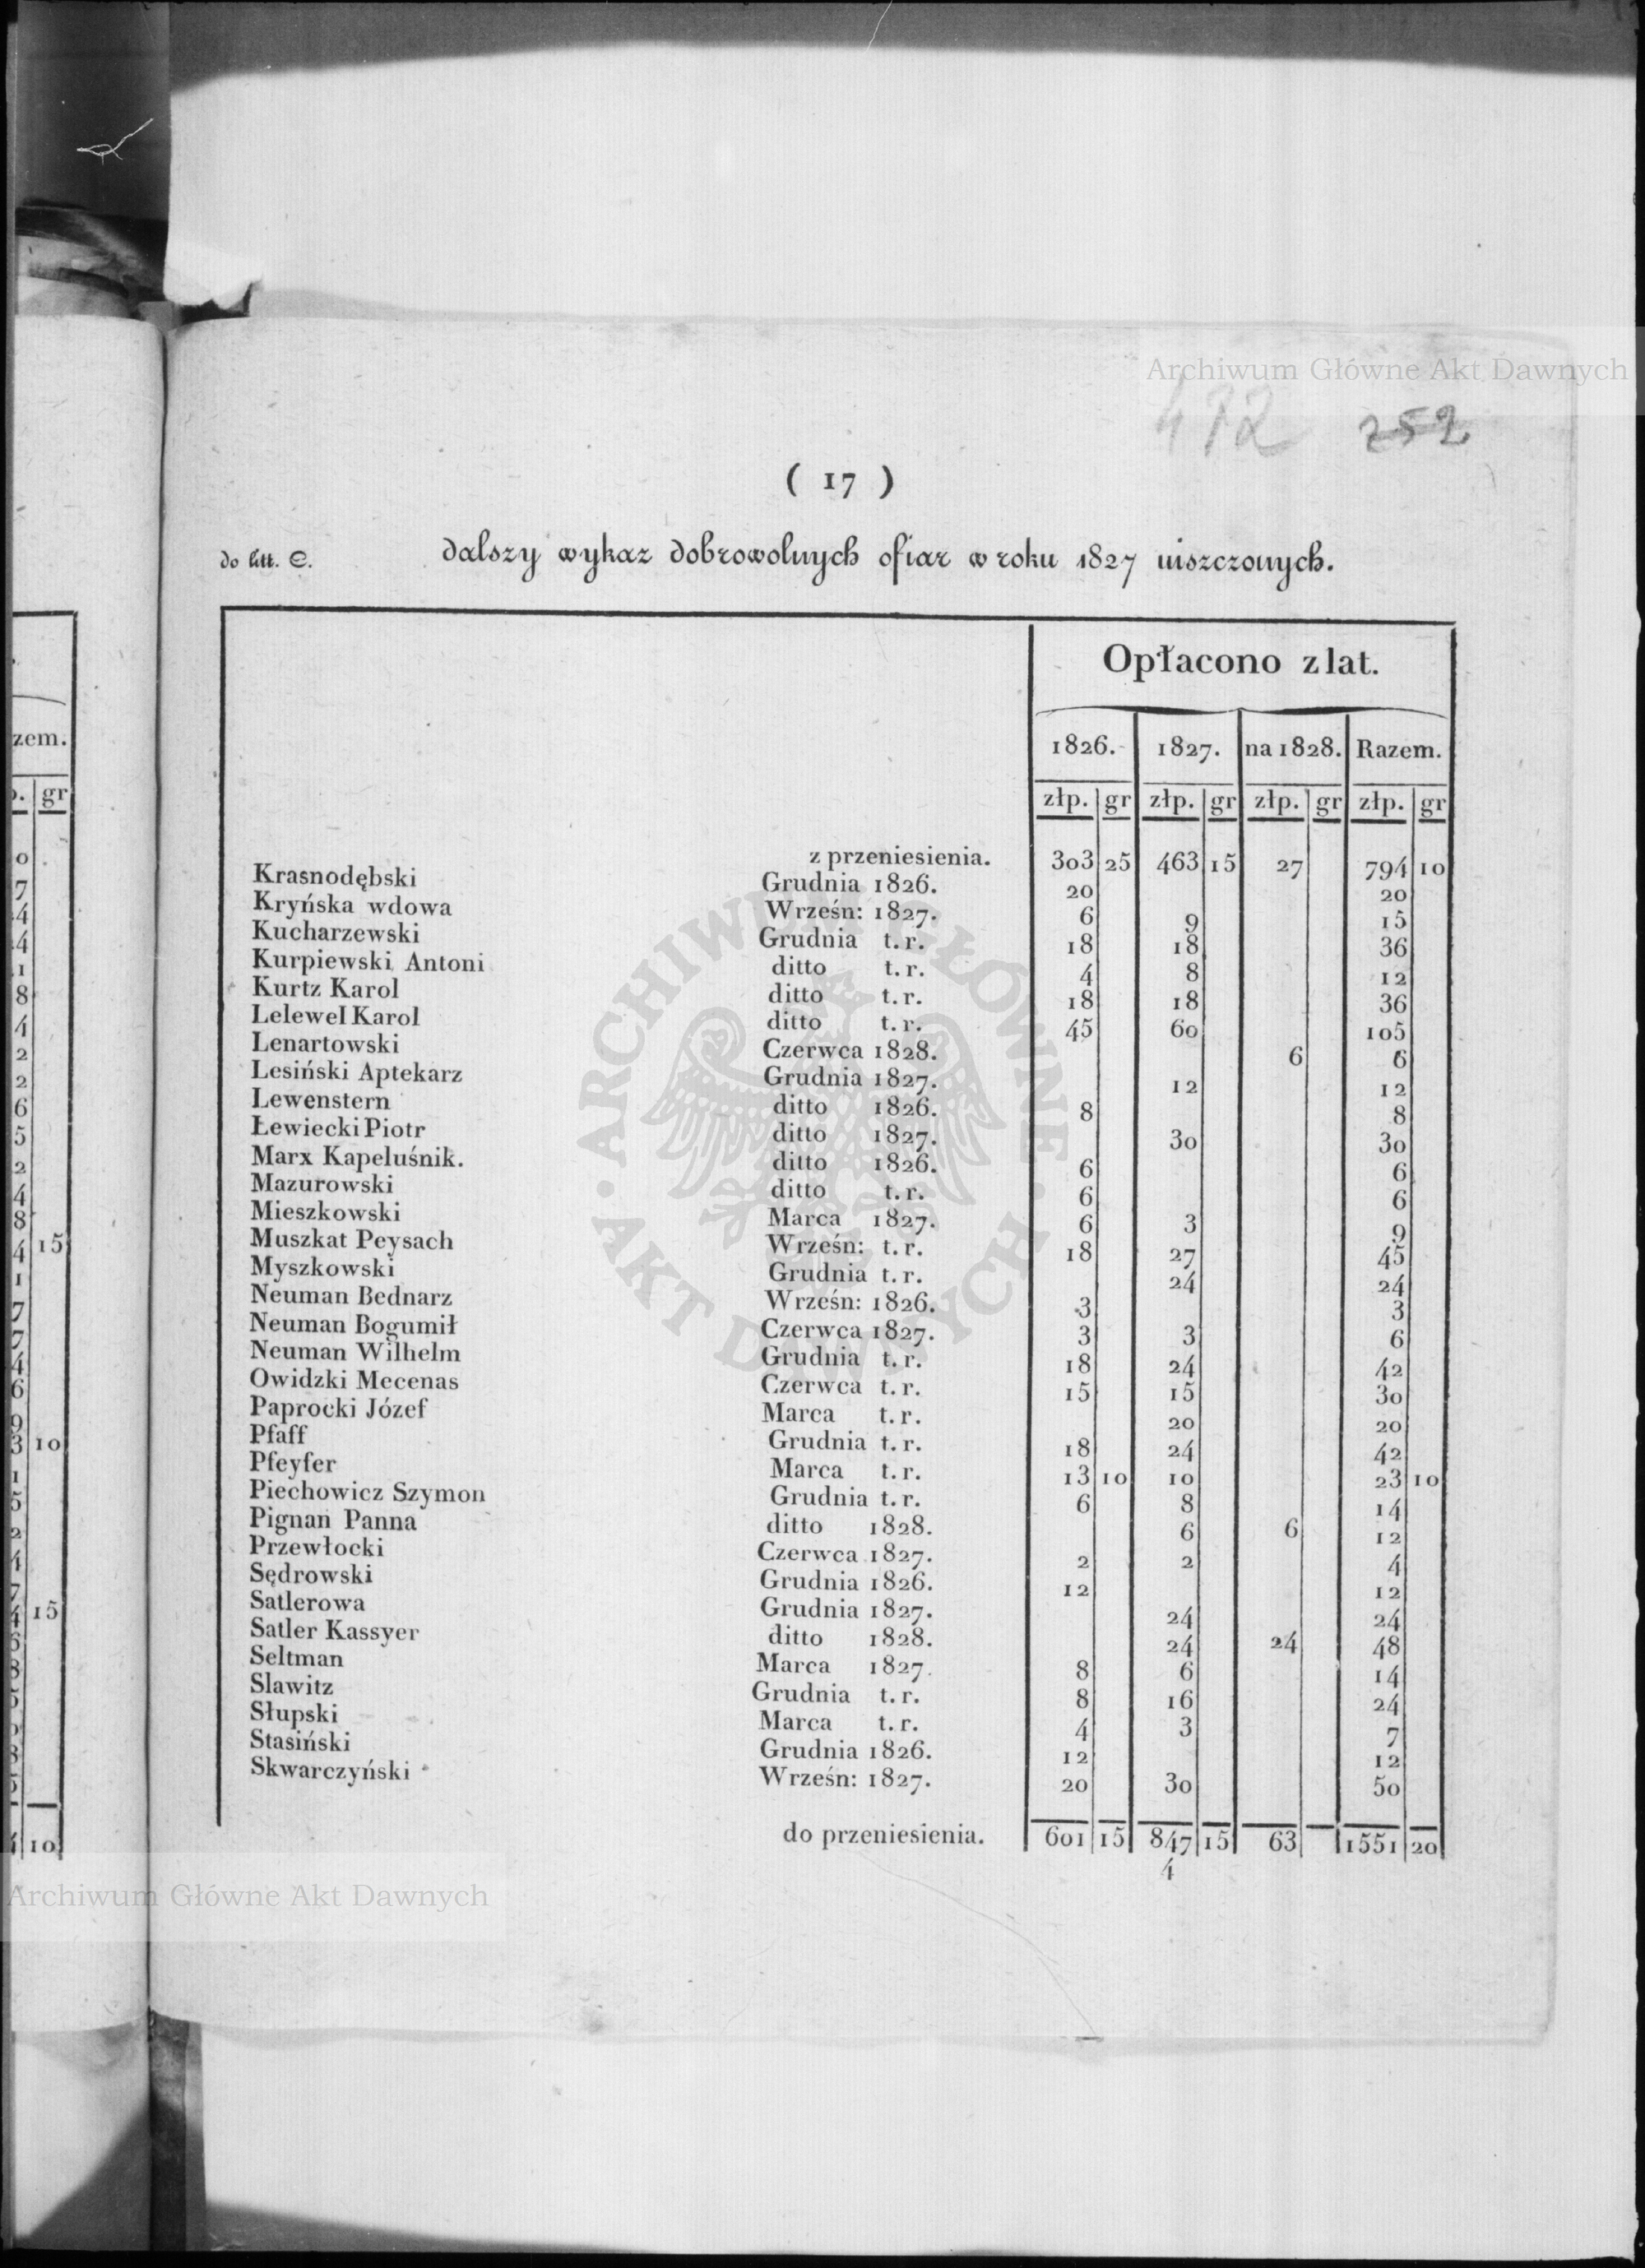 Archiwum Główne Akt Dawnych
( 17 )
do litt. C. dalszy wykaz dobrowolnych ofiar w roku 1827 uiszczonych.
Opłacono z lat.
1826. 1827. na 1828. Razem.
złp. gr złp. gr złp. gr złp. gr
z przeniesienia. 303 25 463 15 27 794 10
Krasnodębski Grudnia 1826. 20 20
Kryńska wdowa Wrześn: 1827. 6 9 15
Kucharzewski Grudnia t. r. 18 18 36
Kurpiewski Antoni ditto t. r. 4 8 12
Kurtz Karol ditto t. r. 18 18 36
Lelewel Karol ditto t. r. 45 60 105
Lenartowski Czerwca 1828. 6 6
Lesiński Aptekarz Grudnia 1827. 12 12
Lewenstern ditto 1826. 8 8
Łewiecki Piotr ditto 1827. 30 30
Marx Kapeluśnik. ditto 1826. 6 6
Mazurowski ditto t. r. 6 6
Mieszkowski Marca 1827. 6 3 9
Muszkat Peysach Wrześn: t. r. 18 27 45
Myszkowski Grudnia t. r. 24 24
Neuman Bednarz Wrześn: 1826. 3 3
Neuman Bogumił Czerwca 1827. 3 3 6
Neuman Wilhelm Grudnia t. r. 18 24 42
Owidzki Mecenas Czerwca t. r. 15 15 30
Paprocki Józef Marca t. r. 20 20
Pfaff Grudnia t. r. 18 24 42
Pfeyfer Marca t. r. 13 10 10 23 10
Piechowicz Szymon Grudnia t. r. 6 8 14
Pignan Panna ditto 1828. 6 6 12
Przewłocki Czerwca 1827. 2 2 4
Sędrowski Grudnia 1826. 12 12
Satlerowa Grudnia 1827. 24 24
Satler Kassyer ditto 1828. 24 24 48
Seltman Marca 1827. 8 6 14
Slawitz Grudnia t. r. 8 16 24
Słupski Marca t. r. 4 3 7
Stasiński Grudnia 1826. 12 12
Skwarczyński Wrześn: 1827. 20 30 50
do przeniesienia. 601 15 847 15 63 1551 20
4
Archiwum Główne Akt Dawnych
ARCHIWUM GŁÓWNE AKT DAWNYCH